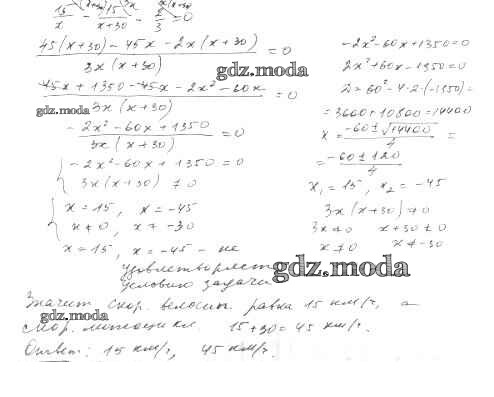 15/x - 15/(x+30) - 2/3 = 0
(45(x+30) - 45x - 2x(x+30)) / (3x(x+30)) = 0
gdz.moda
(45x + 1350 - 45x - 2x² - 60x) / (3x(x+30)) = 0
gdz.moda
(-2x² - 60x + 1350) / (3x(x+30)) = 0
{ -2x² - 60x + 1350 = 0
3x(x+30) ≠ 0
{ x = 15, x = -45
x ≠ 0, x ≠ -30
x = 15, x = -45 - не
удовлетворяет
условию задачи
-2x² - 60x + 1350 = 0
2x² + 60x - 1350 = 0
D = 60² - 4·2·(-1350) =
= 3600 + 10800 = 14400
x = (-60 ± √14400) / 4 =
= (-60 ± 120) / 4
x₁ = 15, x₂ = -45
3x(x+30) ≠ 0
3x ≠ 0 x+30 ≠ 0
x ≠ 0 x ≠ -30
gdz.moda
Значит скор. велосип. равна 15 км/ч, а
gdz.moda
скор. мотоцикл. 15+30 = 45 км/ч.
Ответ: 15 км/ч, 45 км/ч.